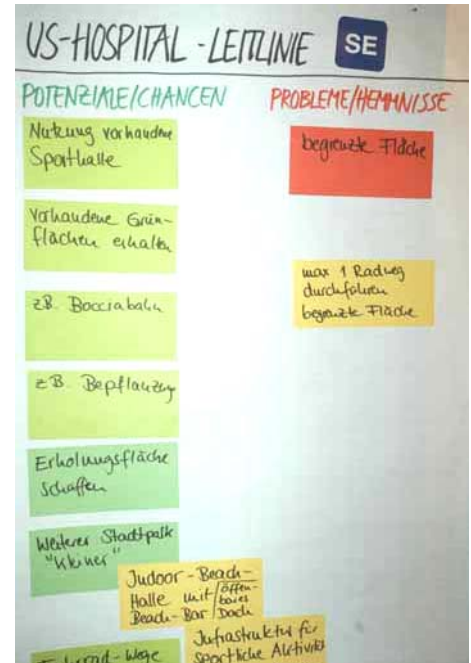 US-HOSPITAL - LEITLINIE SE
POTENZIALE/CHANCEN
Nutzung vorhandene
Sporthalle
Vorhandene Grün-
flächen erhalten
zB. Bocciabahn
z B. Bepflanzung
Erholungsfläche
schaffen
Weiterer Stadtpark
"Kleiner"
Indoor-Beach-
Halle mit öffen-
bares
Beach-Bar Dach
Infrastruktur für
sportliche Aktivität
Fahrrad-Wege
PROBLEME/HEMMNISSE
begrenzte Fläche
max 1 Radweg
durchführen
begrenzte Fläche